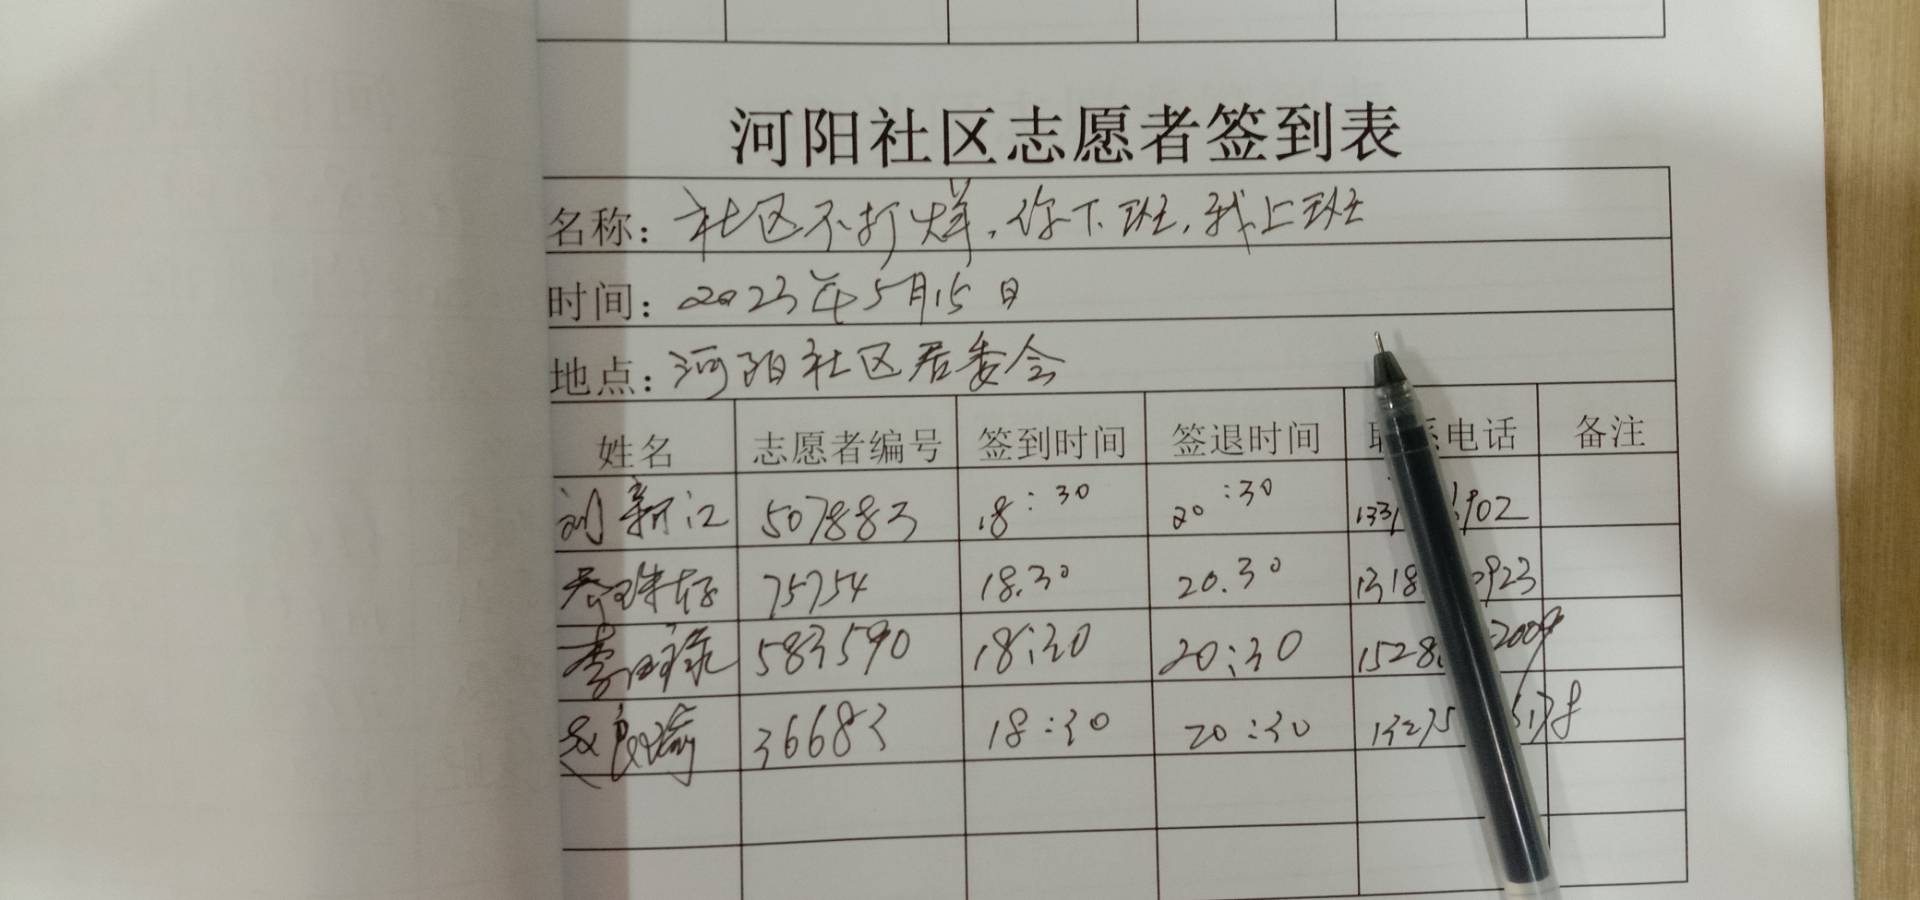 河阳社区志愿者签到表
名称：社区不打烊，你下班，我上班
时间：2023年5月15日
地点：河阳社区居委会
姓名 志愿者编号 签到时间 签退时间 电话 备注
刘新江 507883 18:30 20:30 133 1902
75754 18.30 20.30 1318 0923
李 583590 18:30 20:30 1528 2009
赵良瑜 36683 18:30 20:30 13275